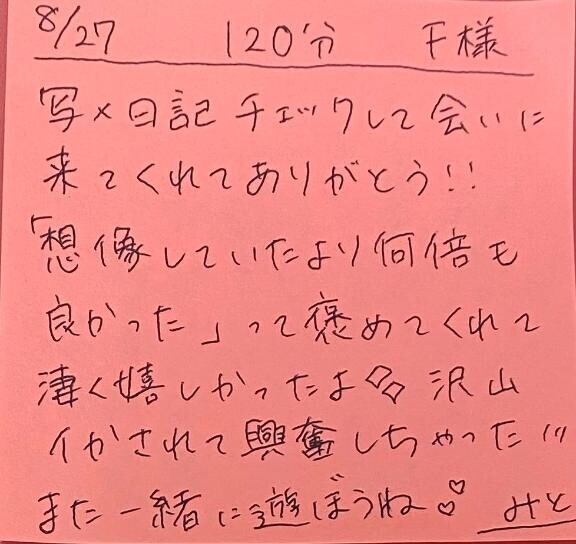 8/27 120分 F様
写メ日記チェックして会いに
来てくれてありがとう!!
「想像していたより何倍も
良かった」って褒めてくれて
凄く嬉しかったよ 沢山
イかされて興奮しちゃった!!!
また一緒に遊ぼうね♡ みと